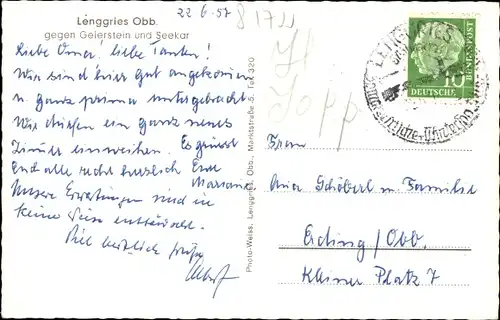 22.6.57
Lenggries Obb.
gegen Geierstein und Seekar
Liebe Oma! liebe Tanten!
Wir sind hier gut angekommen
u. ganz prima untergebracht.
Wir dürfen ein ganz neues
Zimmer einweihen. Es grüsst
Euch alle recht herzlich Eure
Marianne
Unsere Erwartungen sind in
keine Weise enttäuscht.
Viel herzliche Grüße
Photo-Weiss, Lenggries, Obb., Marktstraße 5, Tel. 320
LENGGRIES
10
DEUTSCHE
BUNDESPOST
Frau
Schöberl u. Familie
Erding/Obb.
Kleiner Platz 7